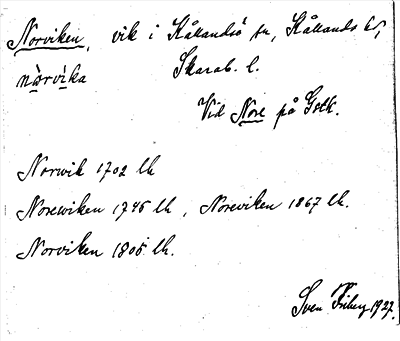 Norviken, vik i Kållandsö sn, Kållands hd,
nàrvi̇ka Skarab. l.
Vid Nore på Gstk.
Norwik 1702 lk
Norewiken 1745 lk, Noreviken 1867 lk.
Norviken 1805 lk.
Sven Friberg 1927.